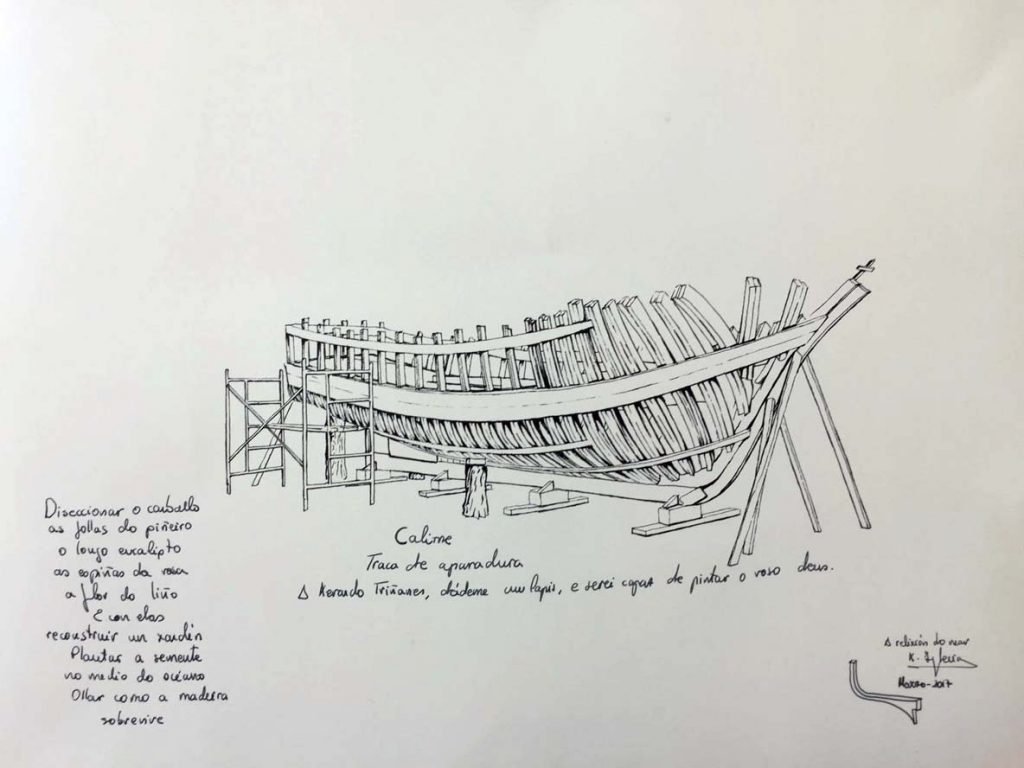 Diseccionar o carballo
as follas do piñeiro
o longo eucalipto
as espiñas da rosa
a flor do liño
E con elas
reconstruir un xardín
Plantar a semente
no medio do océano
Ollar como a madeira
sobrevive
Calime
Traca de aparadura
A Gerardo Triñanes, dádeme un lapis, e serei capaz de pintar o voso deus.
A relixión do mar
Marzo-2017